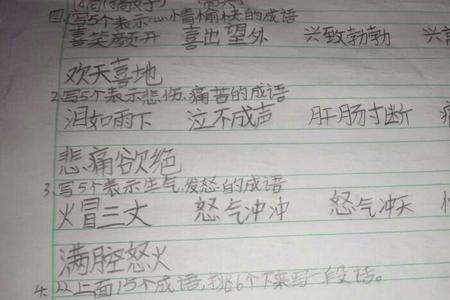 四.写5个表示心情愉快的成语
喜笑颜开 喜出望外 兴致勃勃
欢天喜地
2.写5个表示悲伤、痛苦的成语
泪如雨下 泣不成声 肝肠寸断
悲痛欲绝
3.写5个表示生气、发怒的成语
火冒三丈 怒气冲冲 怒气冲天
满腔怒火
4.从上面15个成语,挑6个下来写一段话。